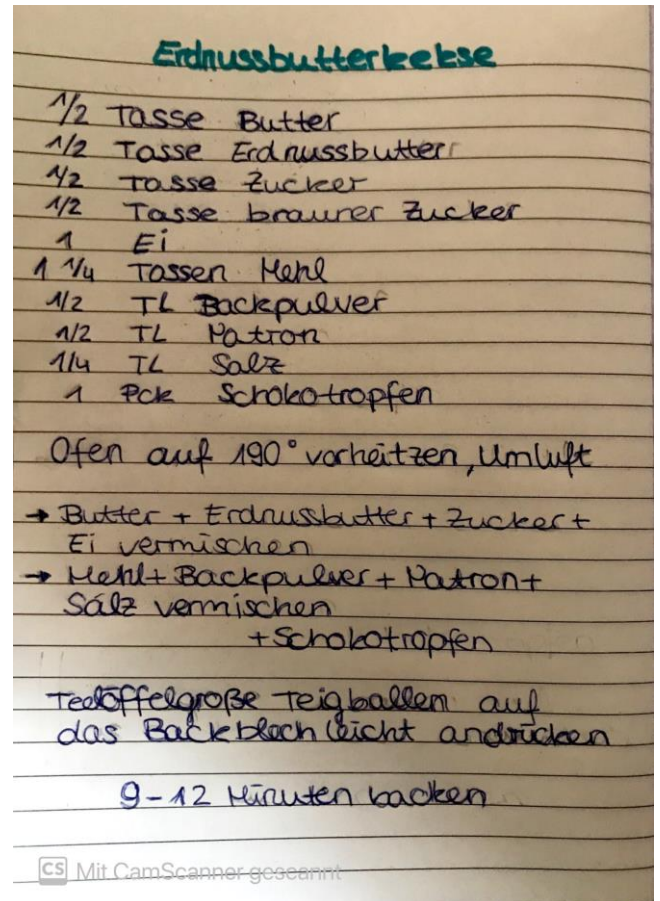 Erdnussbutterkekse
1/2 Tasse Butter
1/2 Tasse Erdnussbutter
1/2 Tasse Zucker
1/2 Tasse brauner Zucker
1 Ei
1 1/4 Tassen Mehl
1/2 TL Backpulver
1/2 TL Natron
1/4 TL Salz
1 Pck Schokotropfen
Ofen auf 190° vorheitzen, Umluft
→ Butter + Erdnussbutter + Zucker +
Ei vermischen
→ Mehl + Backpulver + Natron +
Salz vermischen
+ Schokotropfen
Teelöffelgroße Teigballen auf
das Backblech leicht andrücken
9-12 Minuten backen
CS Mit CamScanner gescannt